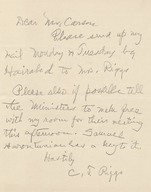 Dear Miss
Please send up my
mail Monday or Tuesday by
to Mrs. Riggs
Please also if possible tell
the Ministers to make free
with my room for their meeting
this afternoon. Samuel
has a key to it.
Hastily
C. T. Riggs